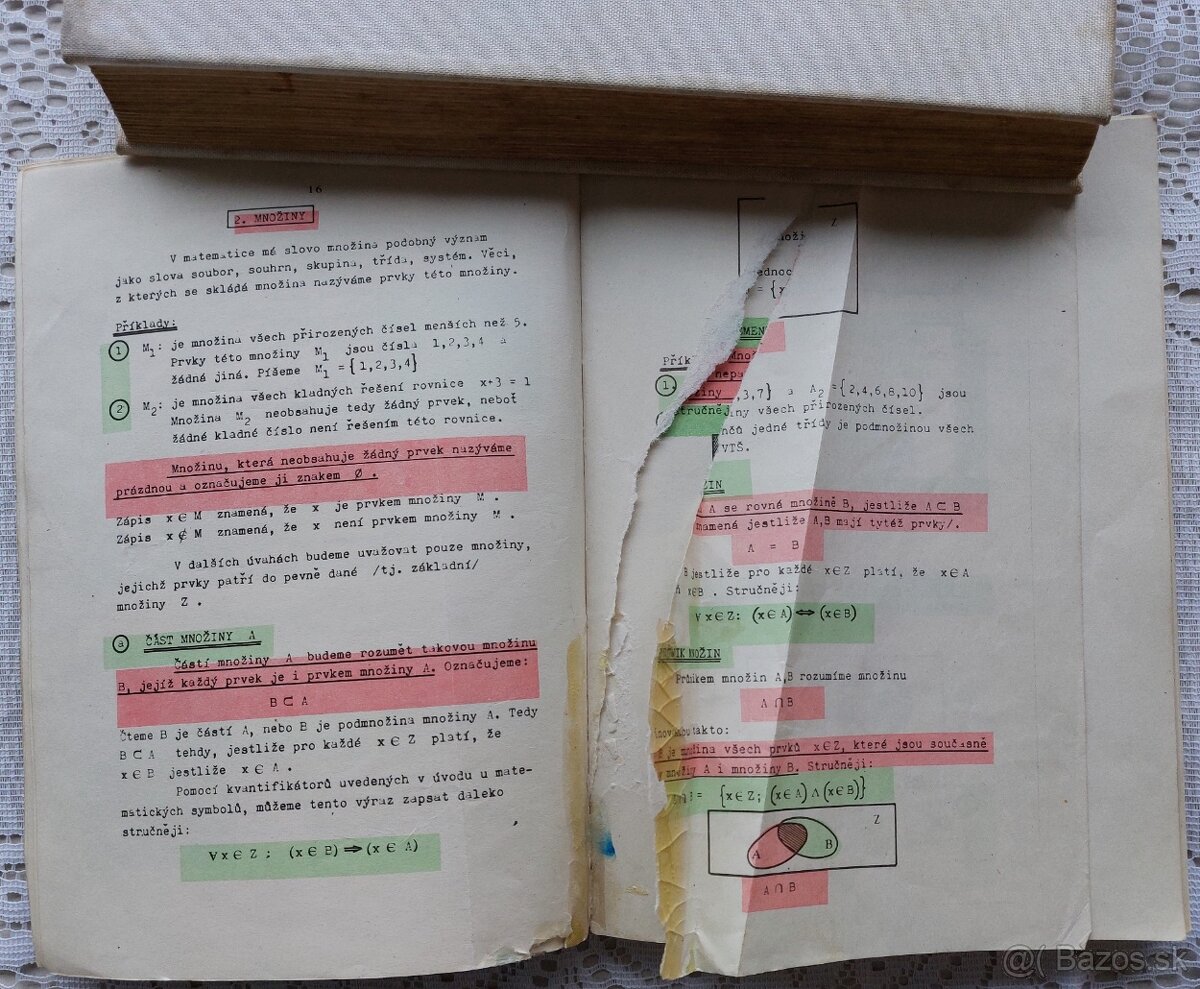 16
2. MNOŽINY
V matematice má slovo množina podobný význam
jako slova soubor, souhrn, skupina, třída, systém. Věci,
z kterých se skládá množina nazýváme prvky této množiny.
Příklady:
1 M₁: je množina všech přirozených čísel menších než 5.
Prvky této množiny M₁ jsou čísla 1,2,3,4 a
žádná jiná. Píšeme M₁ = {1,2,3,4}
2 M₂: je množina všech kladných řešení rovnice x+3 = 1
Množina M₂ neobsahuje tedy žádný prvek, neboť
žádné kladné číslo není řešením této rovnice.
Množinu, která neobsahuje žádný prvek nazýváme
prázdnou a označujeme ji znakem Ø.
Zápis x ∈ M znamená, že x je prvkem množiny M.
Zápis x ∉ M znamená, že x není prvkem množiny M.
V dalších úvahách budeme uvažovat pouze množiny,
jejichž prvky patří do pevně dané /tj. základní/
množiny Z.
a ČÁST MNOŽINY A
Částí množiny A budeme rozumět takovou množinu
B, jejíž každý prvek je i prvkem množiny A. Označujeme:
B ⊂ A
Čteme B je částí A, nebo B je podmnožina množiny A. Tedy
B ⊂ A tehdy, jestliže pro každé x ∈ Z platí, že
x ∈ B jestliže x ∈ A.
Pomocí kvantifikátorů uvedených v úvodu u mate-
matických symbolů, můžeme tento výraz zapsat daleko
stručněji:
∀x ∈ Z; (x ∈ B) ⇒ (x ∈ A)
Z
= {x
1.
,3,7} a A₂ = {2,4,6,8,10} jsou
stručněj
iny všech přirozených čísel.
jedné třídy je podmnožinou všech
VTŠ.
A se rovná množině B, jestliže A ⊂ B
jestliže A,B mají tytéž prvky/.
A = B
jestliže pro každé x∈Z platí, že x∈A
x∈B. Stručněji:
∀x∈Z: (x∈A) ⇔ (x∈B)
Průnikem množin A,B rozumíme množinu
A ∩ B
takto:
je množina všech prvků x∈Z, které jsou současně
množiny A i množiny B. Stručněji:
= {x∈Z; (x∈A) ∧ (x∈B)}
Z
A B
A ∩ B
@( Bazos.sk